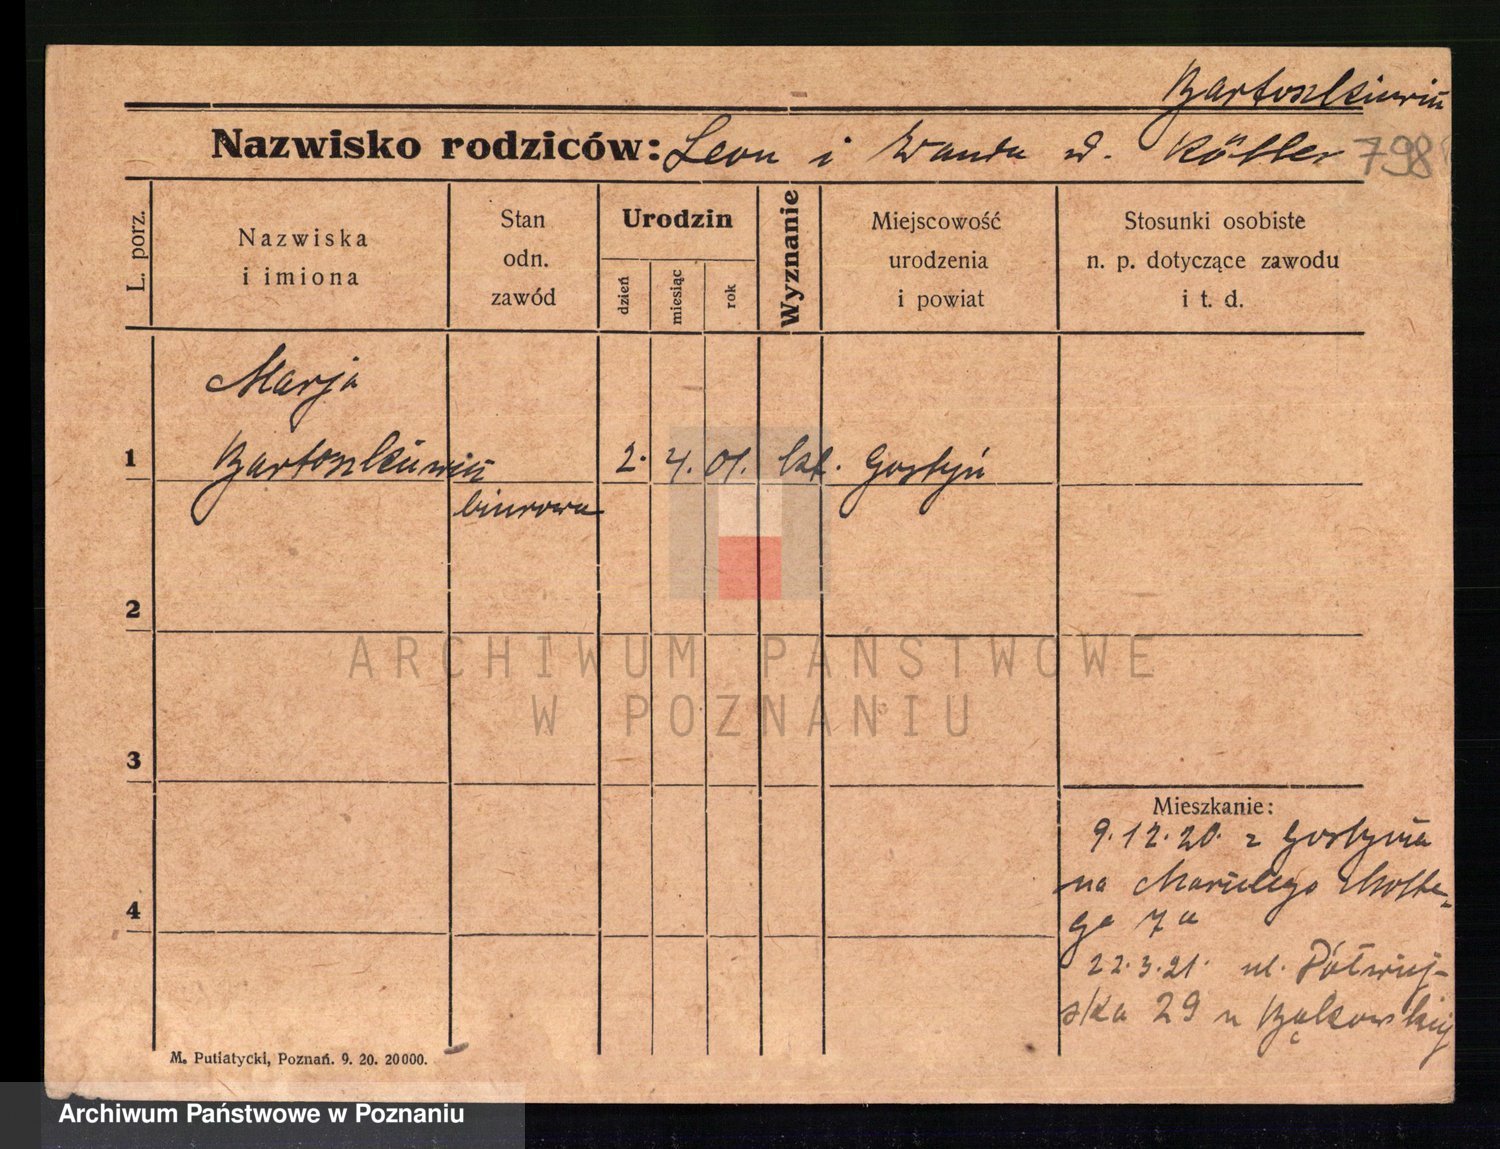 Bartoszkiewicz
Nazwisko rodziców: Leon i Wanda d. Köhler 798
L. porz.
Nazwiska
i imiona
Stan
odn.
zawód
Urodzin
dzień
miesiąc
rok
Wyznanie
Miejscowość
urodzenia
i powiat
Stosunki osobiste
n. p. dotyczące zawodu
i t. d.
Marja
1 Bartoszkiewicz 2. 4. 01. kat. Gostyń
biurowa
2
ARCHIWUM PAŃSTWOWE
W POZNANIU
3
Mieszkanie:
9.12.20. z Gostynia
na
4
7a
22.3.21. ul. Półwiej-
ska 29 u Bąkowskiej
M. Putiatycki, Poznań. 9. 20. 20000.
Archiwum Państwowe w Poznaniu